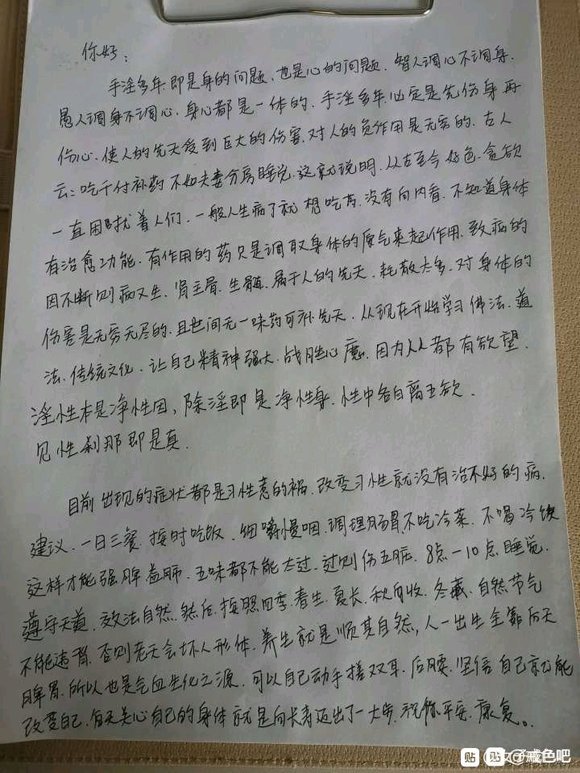 你好：
手淫多年.即是身的问题.也是心的问题.智人调心不调身.
愚人调身不调心.身心都是一体的.手淫多年.必定是先伤身再
伤心.使人的先天受到巨大的伤害.对人的负作用是无穷的.古人
云：吃千付补药不如夫妻分房睡.这就说明.从古至今好色.贪欲
一直困扰着人们.一般人生病了就想吃药.没有向内看.不知道身体
有治愈功能.有作用的药只是调取身体的原气来起作用.致病的
因不断则病又生.肾主骨.生髓.属于人的先天.耗散太多.对身体的
伤害是无穷无尽的.且世间无一味药可补先天.从现在开始学习佛法.道
法.传统文化.让自己精神强大.战胜心魔.因为人人都有欲望.
淫性本是净性因,除淫即是净性身.性中各自离五欲.
见性刹那即是真.
目前出现的症状都是习性惹的祸.改变习性就没有治不好的病.
建议.一日三餐.按时吃饭.细嚼慢咽.调理肠胃.不吃冷菜.不喝冷饮
这样才能强脾益肺.五味都不能太过.过则伤五脏.8点-10点睡觉.
遵守天道.效法自然.然后.按照四季春生.夏长.秋收.冬藏.自然节气
不能违背.否则老天会坏人形体.养生就是顺其自然,人一出生全靠后天
脾胃.所以也是气血生化之源.可以自己动手搓双耳.后腰.坚信自己就能
改变自己.每天关心自己的身体就是向长寿迈出了一大步.祝你平安.康复。
贴 贴 戒色吧